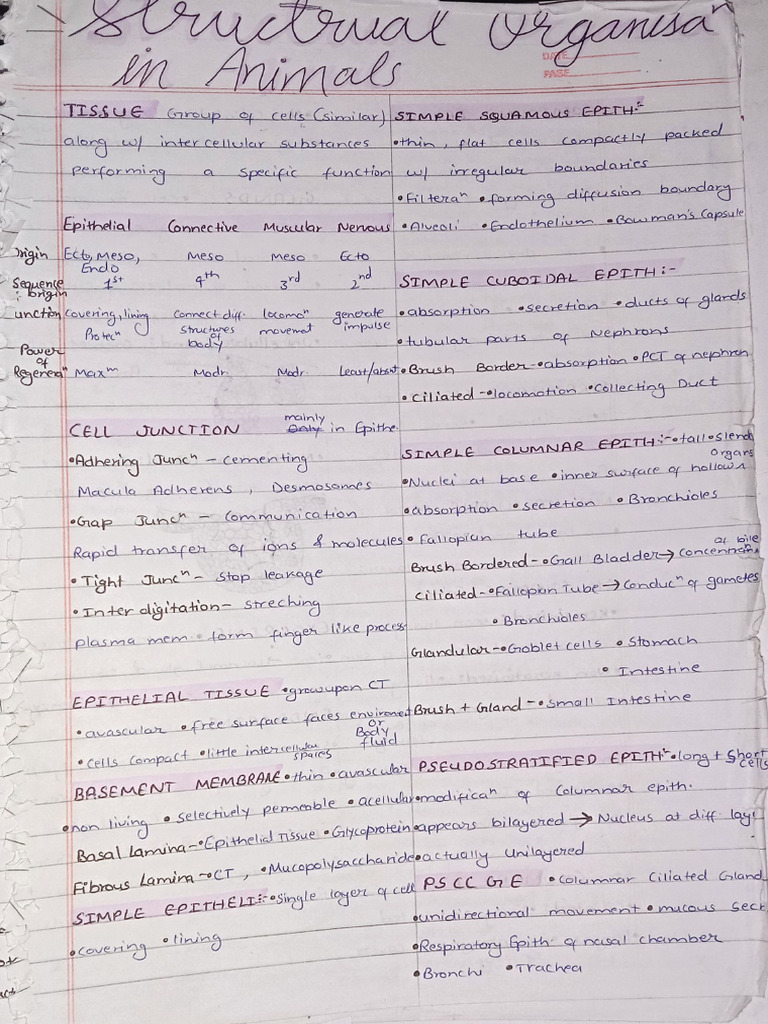 Structrual Organisaⁿ
in Animals
DATE
PAGE
TISSUE Group of cells (similar)
along w/ intercellular substances
performing a specific function
Epithelial Connective Muscular Nervous
Origin Ecto, Meso, Endo Meso Meso Ecto
Sequence : Origin 1st 4th 3rd 2nd
unction covering, lining Protecⁿ Connect diff. structures of body locomoⁿ movement generate impulse
Power of Regeneraⁿ Maxᵐ Modr. Modr. least/absnt
CELL JUNCTION mainly in Epithe
•Adhering Juncⁿ – cementing
Macula Adherens, Desmosomes
•Gap Juncⁿ – Communication
Rapid transfer of ions & molecules
•Tight Juncⁿ – stop leakage
•Interdigitation – streching
plasma mem form finger like process
EPITHELIAL TISSUE •grow upon CT
•avascular •free surface faces environment or Body fluid
•cells compact •little intercellular spaces
BASEMENT MEMBRANE •thin •avascular
•non living •selectively permeable •acellular
Basal Lamina – •Epithelial Tissue •Glycoprotein
Fibrous Lamina – •CT, •Mucopolysaccharide
SIMPLE EPITHELI :- •Single layer of cell
•covering •lining
SIMPLE SQUAMOUS EPITH:-
•thin, flat cells compactly packed
w/ irregular boundaries
•Filteraⁿ •forming diffusion boundary
•Alveoli •Endothelium •Bowman's Capsule
SIMPLE CUBOIDAL EPITH :-
•absorption •secretion •ducts of glands
•tubular parts of Nephrons
•Brush Border – •absorption •PCT of nephron
•Ciliated – •locomotion •Collecting Duct
SIMPLE COLUMNAR EPITH:- •tall •Slend
•Nuclei at base •inner surface of hollow organs
•absorption •secretion •Bronchioles
•Fallopian tube
Brush Bordered – •Gall Bladder → Concennⁿ of bile
Ciliated – •Fallopian Tube → Conducⁿ of gametes
•Bronchioles
Glandular – •Goblet cells •Stomach
•Intestine
Brush + Gland – •Small Intestine
PSEUDOSTRATIFIED EPITH:- •long + Short cells
•modificaⁿ of Columnar epith.
•appears bilayered → Nucleus at diff lay
•actually Unilayered
PSCCGE •Columnar Ciliated Gland
•unidirectional movement •mucous secr
•Respiratory Epith of nasal chamber
•Bronchi •Trachea